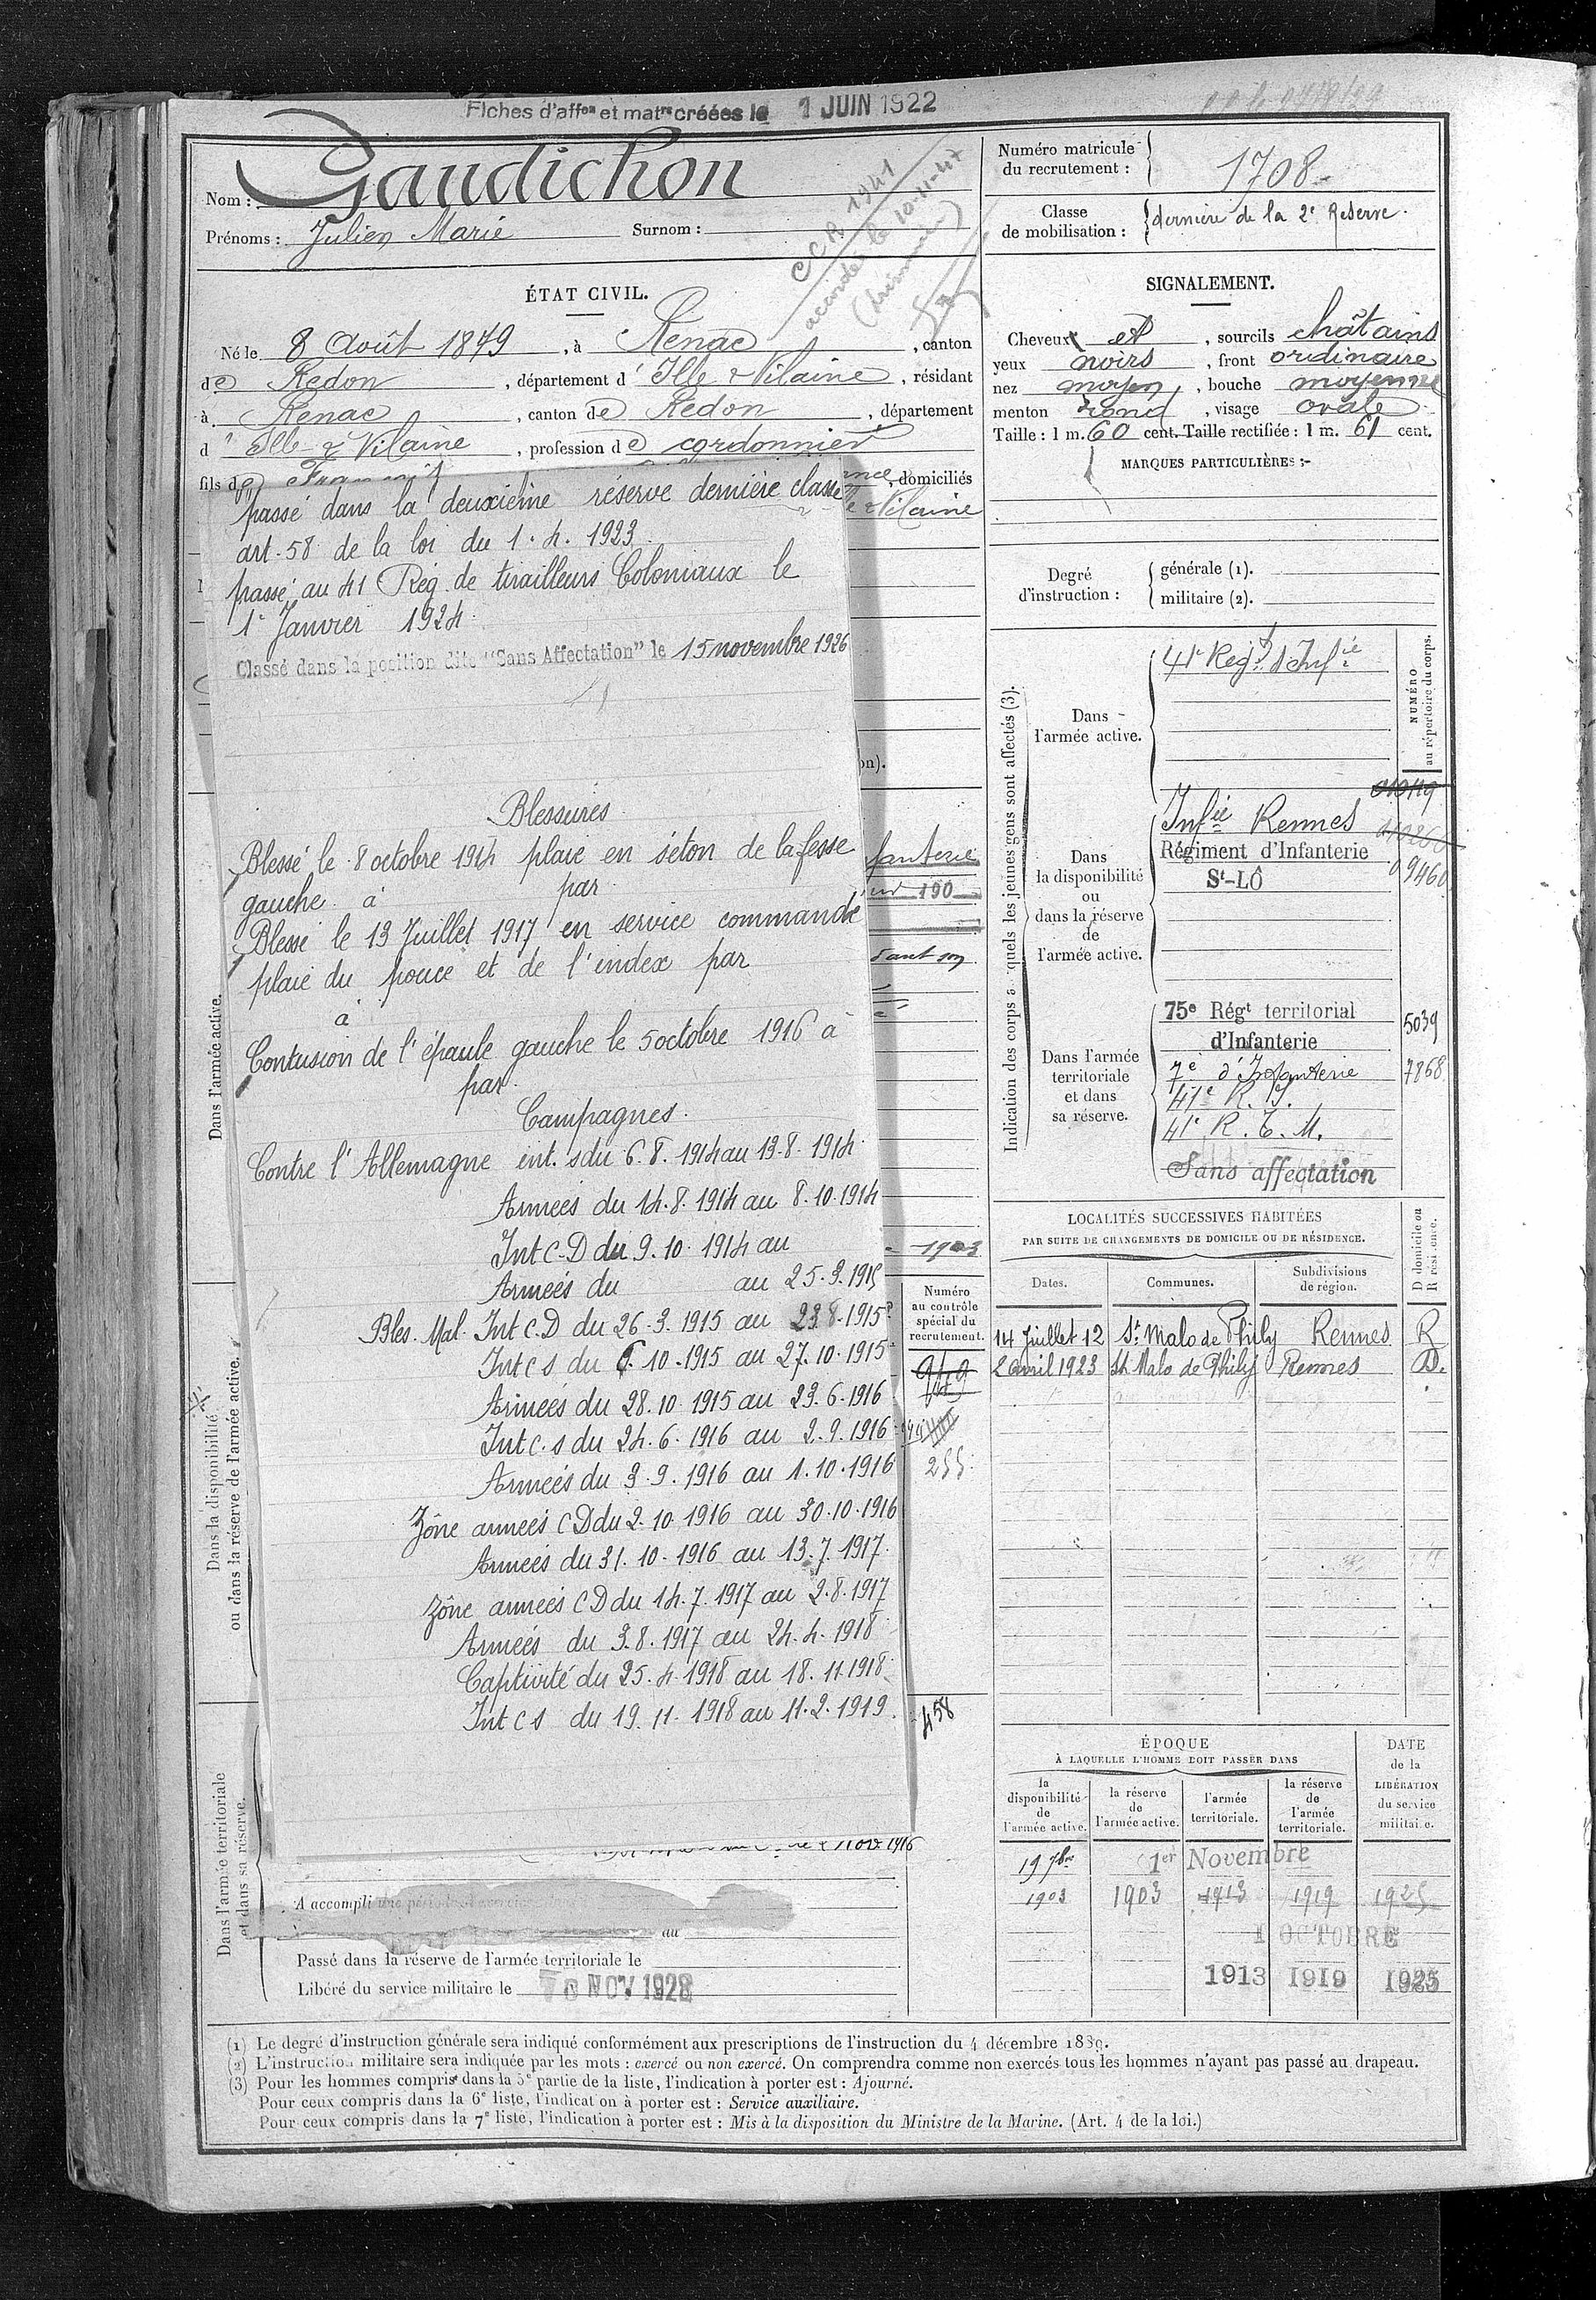 Fiches d'affon et matre créées le 1 JUIN 1922
Nom : Gaudichon
Prénoms : Julien Marie Surnom :
CCR 1941
accordée le 10-11-47
Numéro matricule du recrutement : 1708
Classe de mobilisation : dernière de la 2e Réserve.
ÉTAT CIVIL.
Né le 8 Août 1879, à Renac, canton
de Redon, département d'Ille & Vilaine, résidant
à Renac, canton de Redon, département
d'Ille & Vilaine, profession de cordonnier
fils de domiciliés
& Vilaine
passé dans la deuxième réserve dernière classe
art. 58 de la loi du 1. 4. 1923.
passé au 41 Rég. de tirailleurs Coloniaux le
1e Janvier 1924.
Classé dans la position dite "Sans Affectation" le 15 novembre 1926
Blessures
Blessé le 8 octobre 1914 plaie en séton de la fesse
gauche à par
Blesse le 13 Juillet 1917 en service commandé
plaie du pouce et de l'index par
à
Contusion de l'épaule gauche le 5 octobre 1916 à
par
Campagnes.
Contre l'Allemagne int. s du 6. 8. 1914 au 13. 8. 1914
Armées du 14. 8. 1914 au 8. 10. 1914
Int C-D du 9. 10. 1914 au
Armées du au 25. 3. 1915
Bles. Mal. Int C.D du 26. 3. 1915 au 23. 8. 1915
Int c s du 6. 10. 1915 au 27. 10. 1915
Armées du 28. 10 1915 au 23. 6. 1916
Int c. s du 24. 6. 1916 au 2. 9. 1916
Armées du 3. 9. 1916 au 1. 10. 1916
Zône armées C D du 2. 10. 1916 au 30. 10. 1916
Armées du 31. 10. 1916 au 13. 7. 1917.
Zône armées C D du 14. 7. 1917 au 2. 8. 1917
Armées du 3. 8. 1917 au 24. 4. 1918
Captivité du 25. 4. 1918 au 18. 11. 1918
Int c s du 19. 11. 1918 au 11. 2. 1919.
on).
fanterie
190
1903
Numéro
au contrôle
spécial du
recrutement.
255
458
Dans l'armée active.
Dans la disponibilité
ou dans la réserve de l'armée active.
Dans l'armée territoriale
et dans sa réserve.
nov 1916
A accompli
au
Passé dans la réserve de l'armée territoriale le
Libéré du service militaire le NOV 1928
SIGNALEMENT.
Cheveux et, sourcils châtains
yeux noirs, front ordinaire
nez moyen, bouche moyenne
menton rond, visage ovale
Taille : 1 m. 60 cent. Taille rectifiée : 1 m. 61 cent.
MARQUES PARTICULIÈRES :
Degré d'instruction :
générale (1).
militaire (2).
Indication des corps auxquels les jeunes gens sont affectés (3).
NUMÉRO
au répertoire du corps.
Dans
l'armée active.
41e Regt d'Infie
Dans
la disponibilité
ou
dans la réserve
de
l'armée active.
Infie Rennes
Régiment d'Infanterie
St-LÔ
09460
Dans l'armée
territoriale
et dans
sa réserve.
75e Régt territorial
d'Infanterie 5039
7e d'Infanterie 7868
41e R. I.
41e R. T. M.
Sans affectation
LOCALITÉS SUCCESSIVES HABITÉES
PAR SUITE DE CHANGEMENTS DE DOMICILE OU DE RÉSIDENCE.
D domicile ou
R résidence.
Dates. Communes. Subdivisions de région.
14 Juillet 12 St Malo de Phily Rennes R
2 avril 1923 St Malo de Phily Rennes D.
ÉPOQUE
À LAQUELLE L'HOMME DOIT PASSER DANS
DATE
de la
LIBÉRATION
du service
militaire.
la
disponibilité
de
l'armée active.
la réserve
de
l'armée active.
l'armée
territoriale.
la réserve
de
l'armée
territoriale.
19 7bre 1er Novembre
1903 1903 1913 1919 1925
1 OCTOBRE
1913 1919 1925
(1) Le degré d'instruction générale sera indiqué conformément aux prescriptions de l'instruction du 4 décembre 1889.
(2) L'instruction militaire sera indiquée par les mots : exercé ou non exercé. On comprendra comme non exercés tous les hommes n'ayant pas passé au drapeau.
(3) Pour les hommes compris dans la 5e partie de la liste, l'indication à porter est : Ajourné.
Pour ceux compris dans la 6e liste, l'indication à porter est : Service auxiliaire.
Pour ceux compris dans la 7e liste, l'indication à porter est : Mis à la disposition du Ministre de la Marine. (Art. 4 de la loi.)